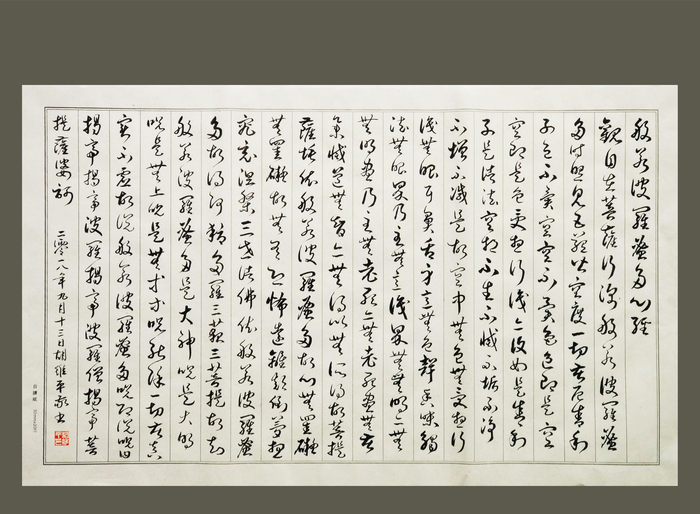 般若波羅蜜多心經
觀自在菩薩行深般若波羅蜜
多時照見五蘊皆空度一切苦厄舍利
子色不異空空不異色色即是空
空即是色受想行識亦復如是舍利
子是諸法空相不生不滅不垢不淨
不增不減是故空中無色無受想行
識無眼耳鼻舌身意無色聲香味觸
法無眼界乃至無意識界無無明亦無
無明盡乃至無老死亦無老死盡無苦
集滅道無智亦無得以無所得故菩提
薩埵依般若波羅蜜多故心無罣礙
無罣礙故無有恐怖遠離顛倒夢想
究竟涅槃三世諸佛依般若波羅蜜
多故得阿耨多羅三藐三菩提故知
般若波羅蜜多是大神咒是大明
咒是無上咒是無等等咒能除一切苦真
實不虛故說般若波羅蜜多咒即說咒曰
揭帝揭帝波羅揭帝波羅僧揭帝菩
提薩婆訶
二零一八年九月十三日胡維平敬書